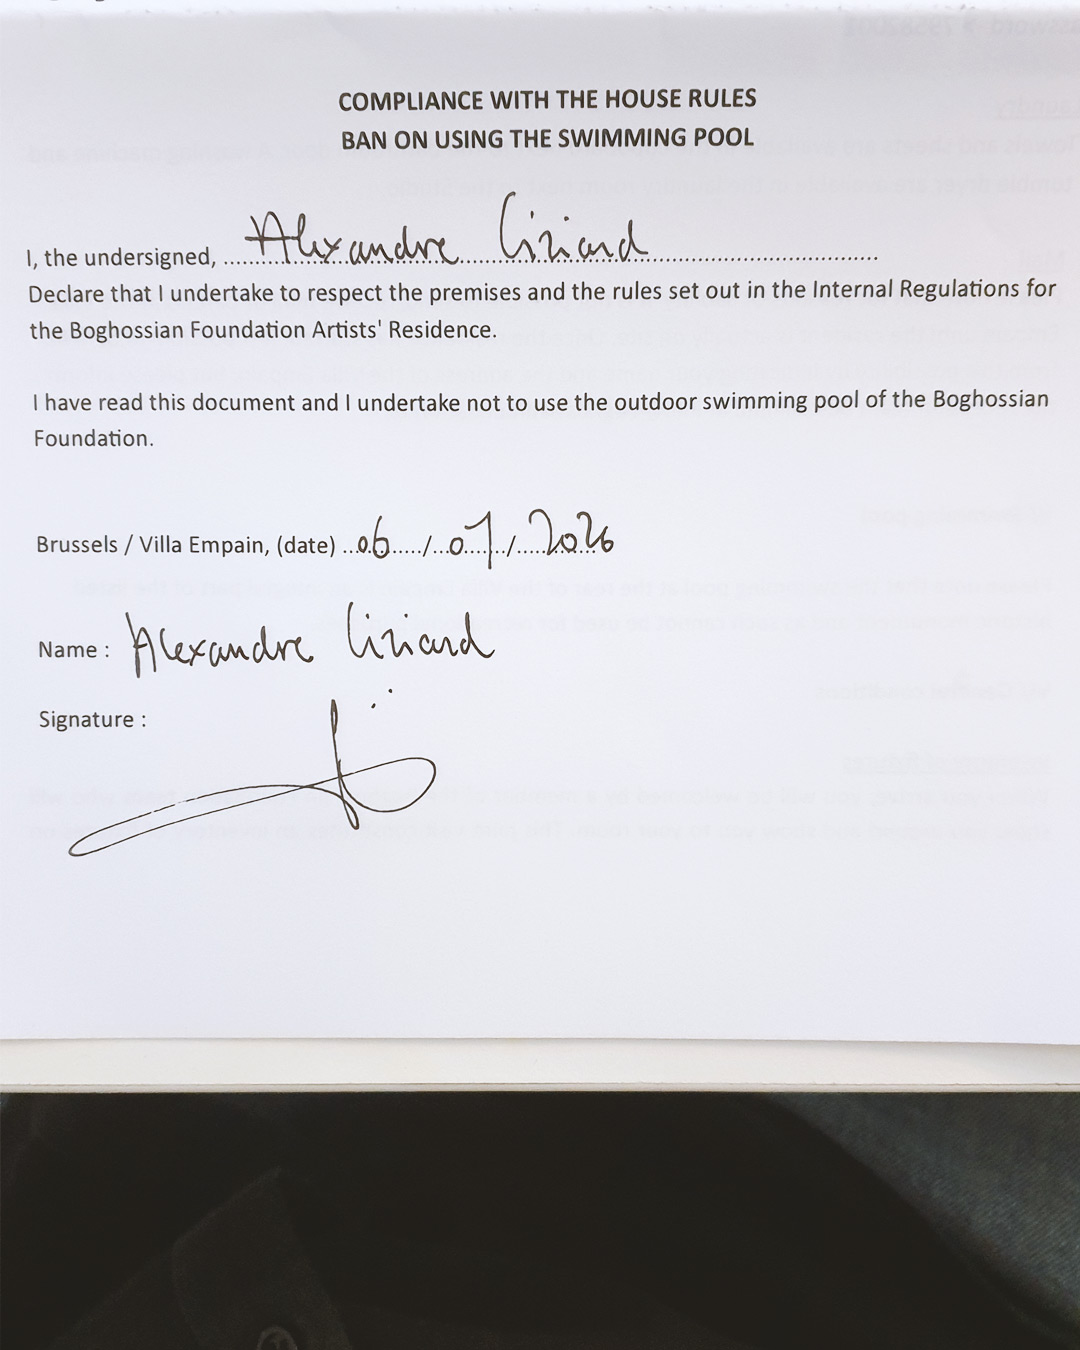 COMPLIANCE WITH THE HOUSE RULES
BAN ON USING THE SWIMMING POOL
I, the undersigned, Alexandre Liziard
Declare that I undertake to respect the premises and the rules set out in the Internal Regulations for
the Boghossian Foundation Artists' Residence.
I have read this document and I undertake not to use the outdoor swimming pool of the Boghossian
Foundation.
Brussels / Villa Empain, (date) 06 / 07 / 2026
Name : Alexandre Liziard
Signature :